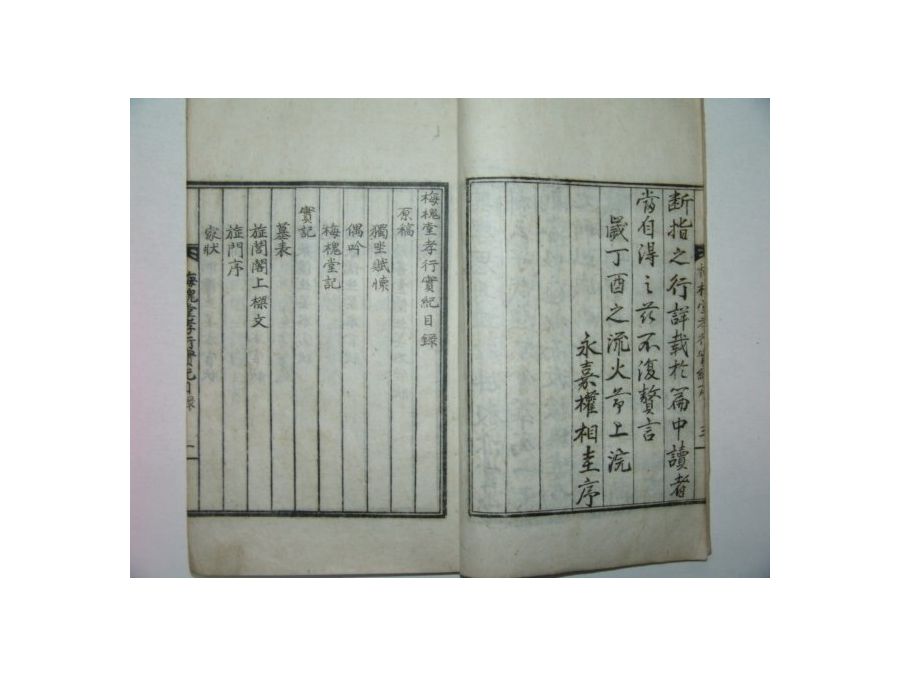 断指之行詳載於篇中讀者
當自得之玆不復贅言
歲丁酉之流火節上浣
永嘉權相圭序
三
梅槐堂孝行實紀目錄
原稿
獨坐賦懷
偶吟
梅槐堂記
實記
墓表
旌閭閣上樑文
旌門序
家狀
梅槐堂孝行實紀目錄
一